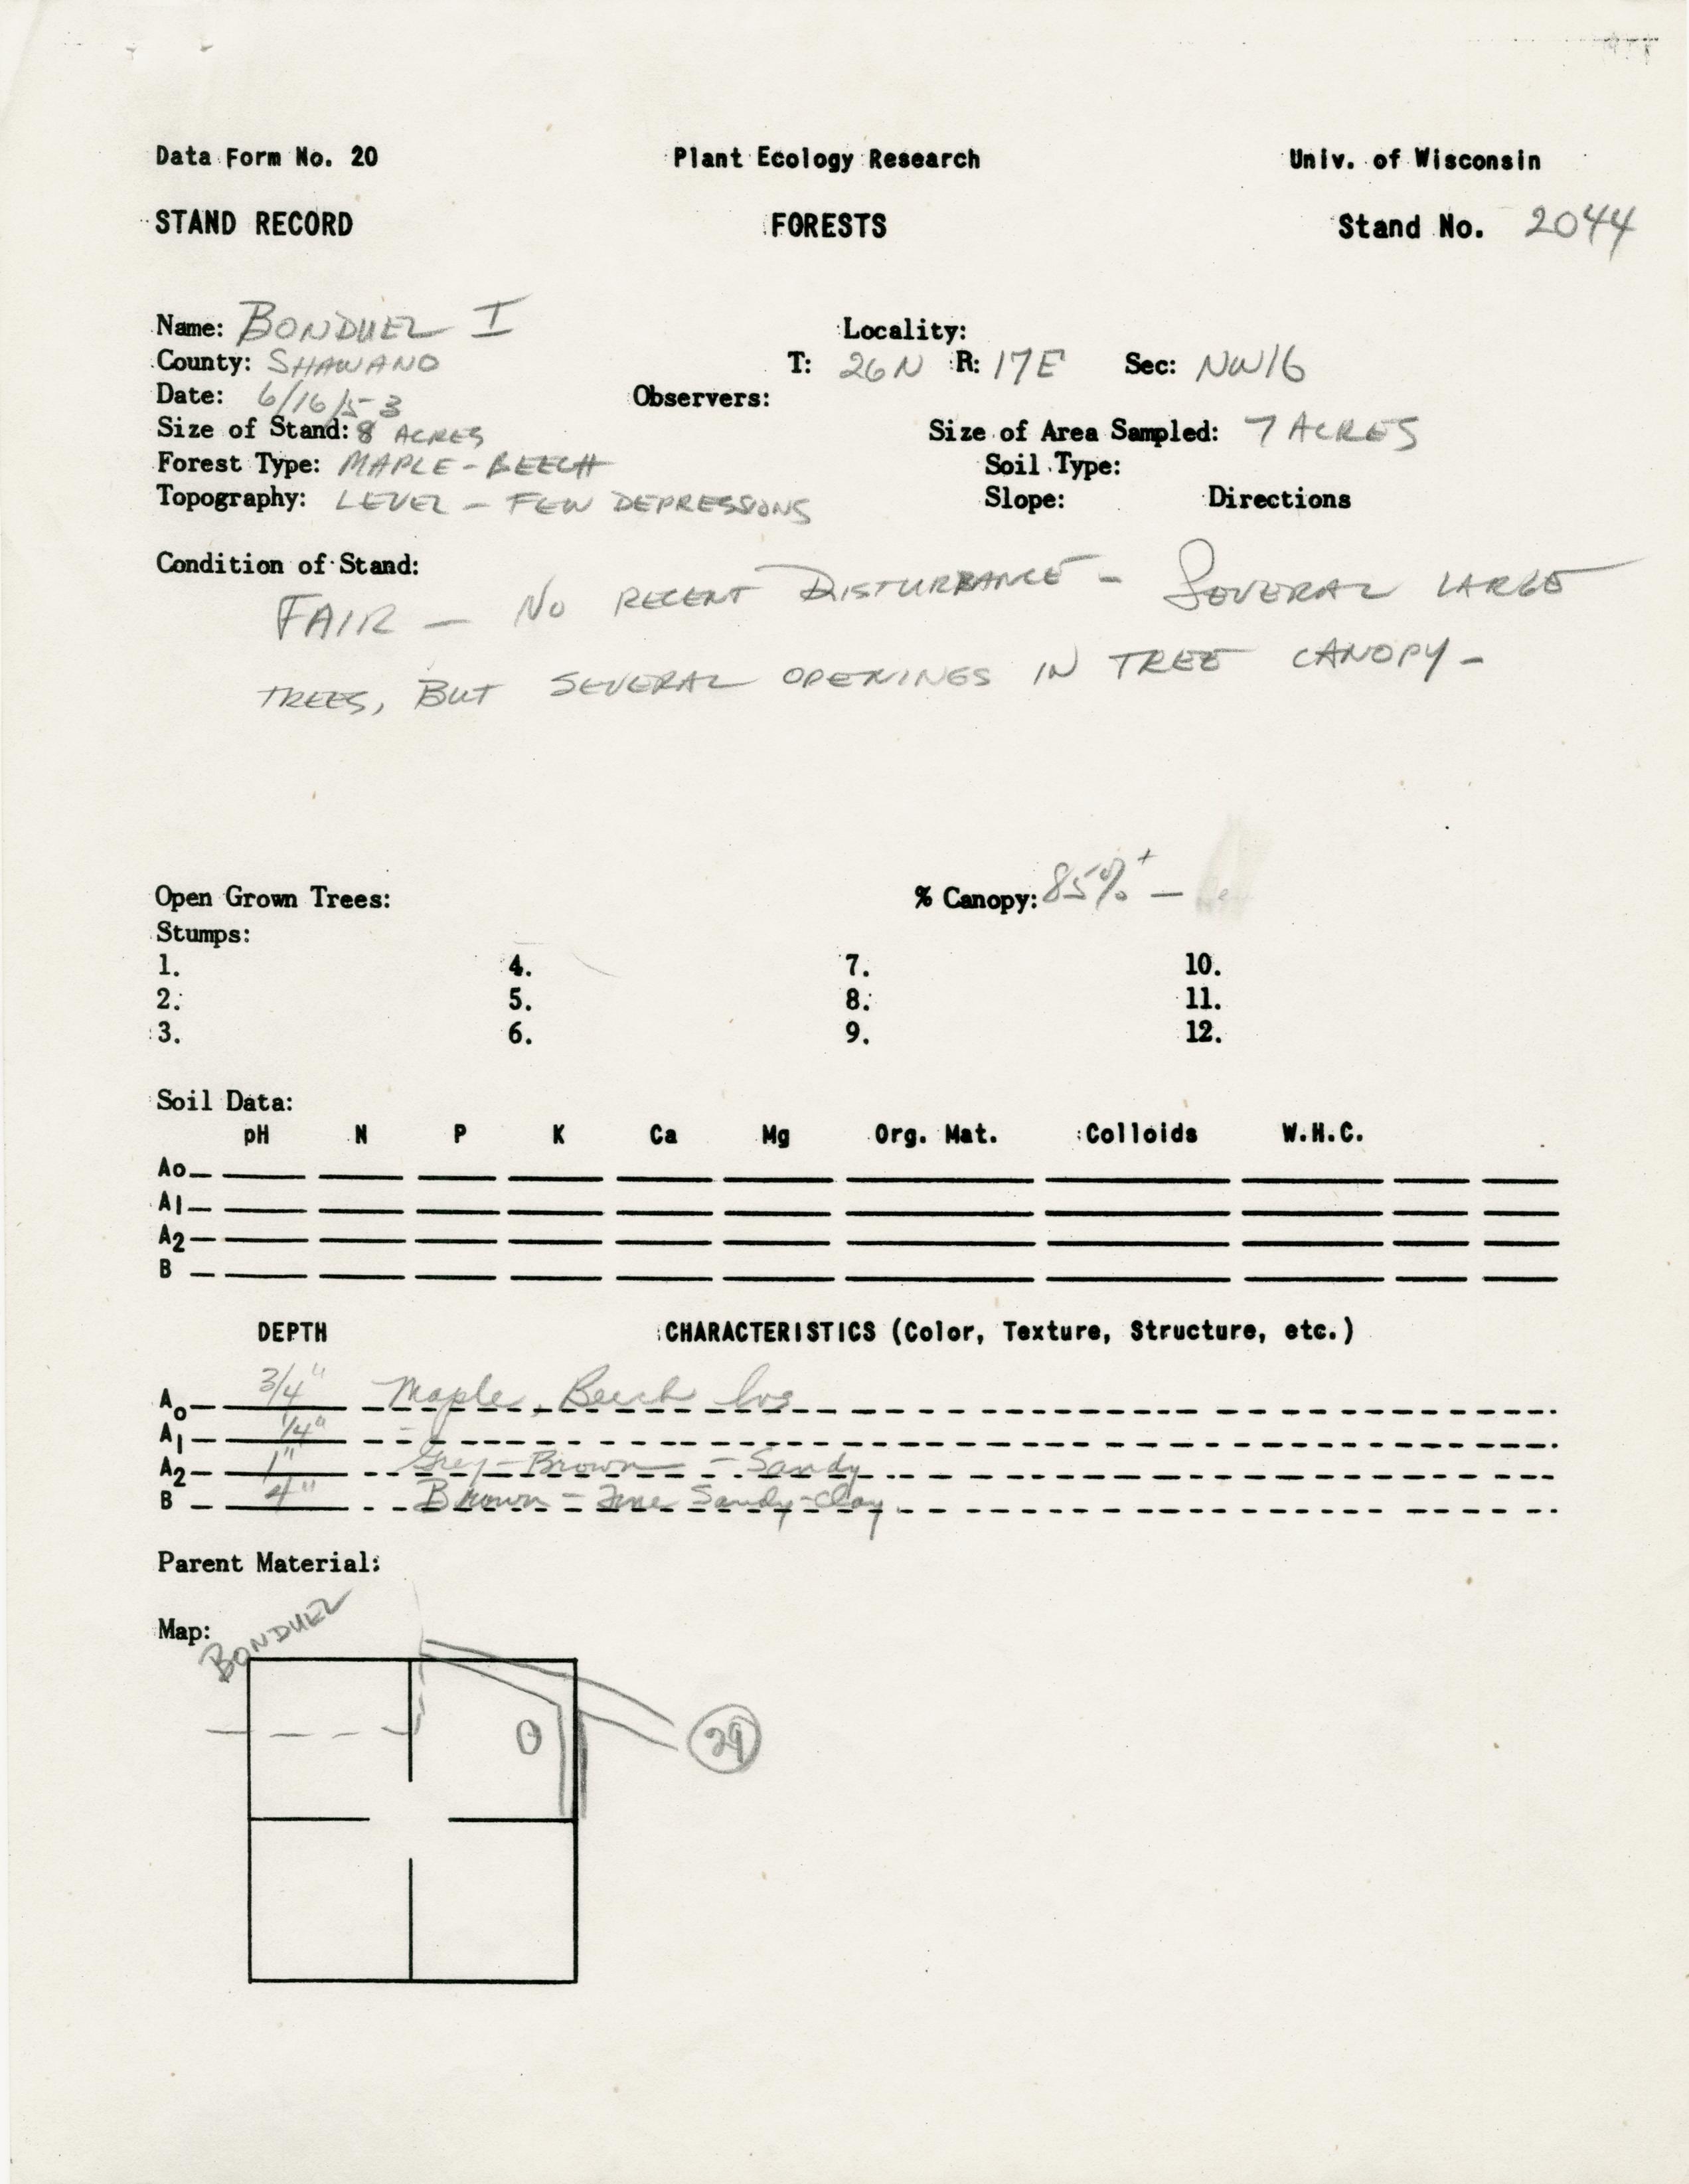 Data Form No. 20 Plant Ecology Research Univ. of Wisconsin
STAND RECORD FORESTS Stand No. 2044
Name: BONDUEL I Locality:
County: SHAWANO T: 26N R: 17E Sec: NW16
Date: 6/16/53 Observers:
Size of Stand: 8 ACRES Size of Area Sampled: 7 ACRES
Forest Type: MAPLE-BEECH Soil Type:
Topography: LEVEL - FEW DEPRESSIONS Slope: Directions
Condition of Stand:
FAIR - NO RECENT DISTURBANCE - SEVERAL LARGE
TREES, BUT SEVERAL OPENINGS IN TREE CANOPY -
Open Grown Trees: % Canopy: 85%+ -
Stumps:
1. 4. 7. 10.
2. 5. 8. 11.
3. 6. 9. 12.
Soil Data:
pH N P K Ca Mg Org. Mat. Colloids W.H.C.
Ao
A1
A2
B
DEPTH CHARACTERISTICS (Color, Texture, Structure, etc.)
Ao 3/4" Maple, Beech lvs
A1 1/4"
A2 1" Grey-Brown - Sandy
B 4" Brown - Fine Sandy-clay
Parent Material:
Map:
BONDUEL
29